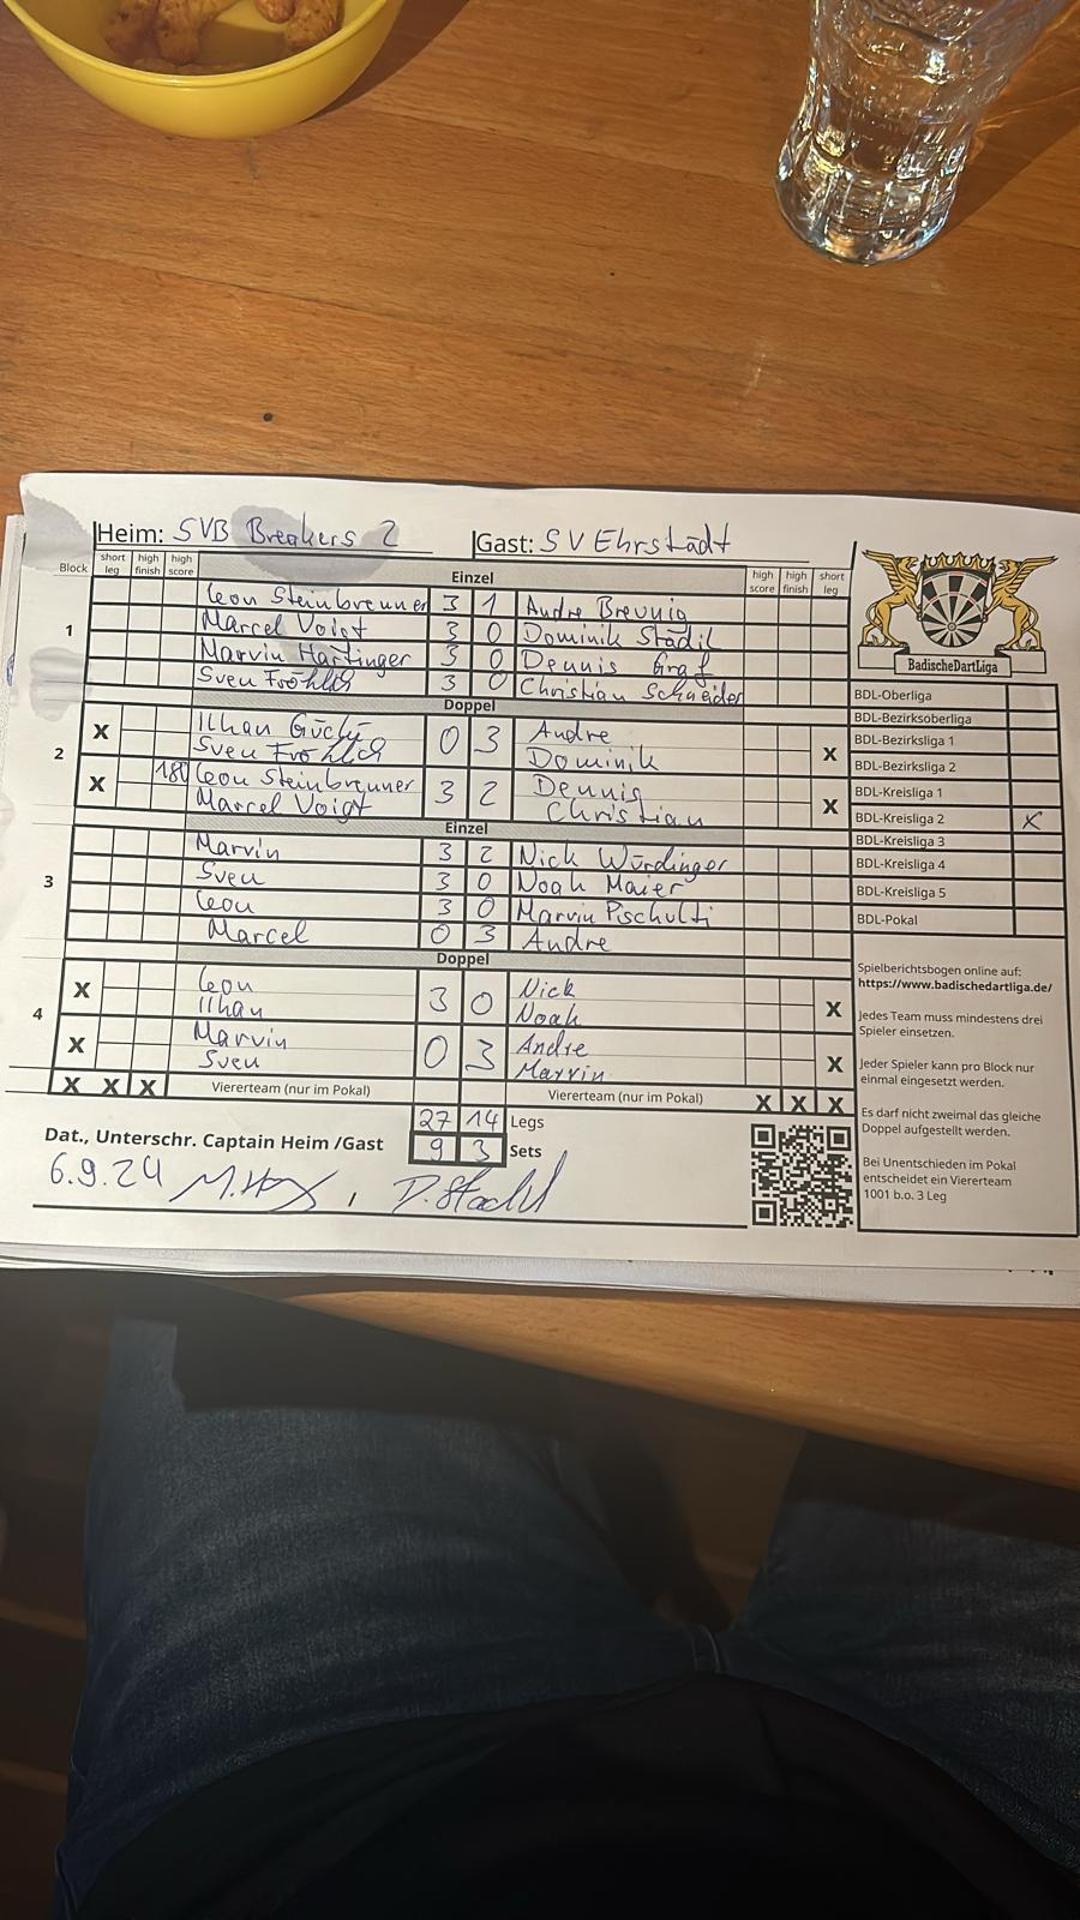 Heim: SVB Breakers 2 Gast: SV Ehrstädt
Block short leg high finish high score Einzel high score high finish short leg
1
Leon Steinbrenner 3 1 Andre Breunig
Marcel Voigt 3 0 Dominik Städil
Marvin Hartinger 3 0 Dennis Graf
Sven Fröhlich 3 0 Christian Schneider
Doppel
2
X Ilhan Güclü 0 3 Andre X
Sven Fröhlich Dominik
X 180 Leon Steinbrenner 3 2 Dennis X
Marcel Voigt Christian
Einzel
3
Marvin 3 2 Nick Würdinger
Sven 3 0 Noah Maier
Leon 3 0 Marvin Pischulti
Marcel 0 3 Andre
Doppel
4
X Leon 3 0 Nick X
Ilhan Noah
X Marvin 0 3 Andre X
Sven Marvin
X X X Viererteam (nur im Pokal) Viererteam (nur im Pokal) X X X
27 14 Legs
Dat., Unterschr. Captain Heim /Gast 9 3 Sets
6.9.24
BadischeDartLiga
BDL-Oberliga
BDL-Bezirksoberliga
BDL-Bezirksliga 1
BDL-Bezirksliga 2
BDL-Kreisliga 1
BDL-Kreisliga 2 X
BDL-Kreisliga 3
BDL-Kreisliga 4
BDL-Kreisliga 5
BDL-Pokal
Spielberichtsbogen online auf:
https://www.badischedartliga.de/
Jedes Team muss mindestens drei
Spieler einsetzen.
Jeder Spieler kann pro Block nur
einmal eingesetzt werden.
Es darf nicht zweimal das gleiche
Doppel aufgestellt werden.
Bei Unentschieden im Pokal
entscheidet ein Viererteam
1001 b.o. 3 Leg